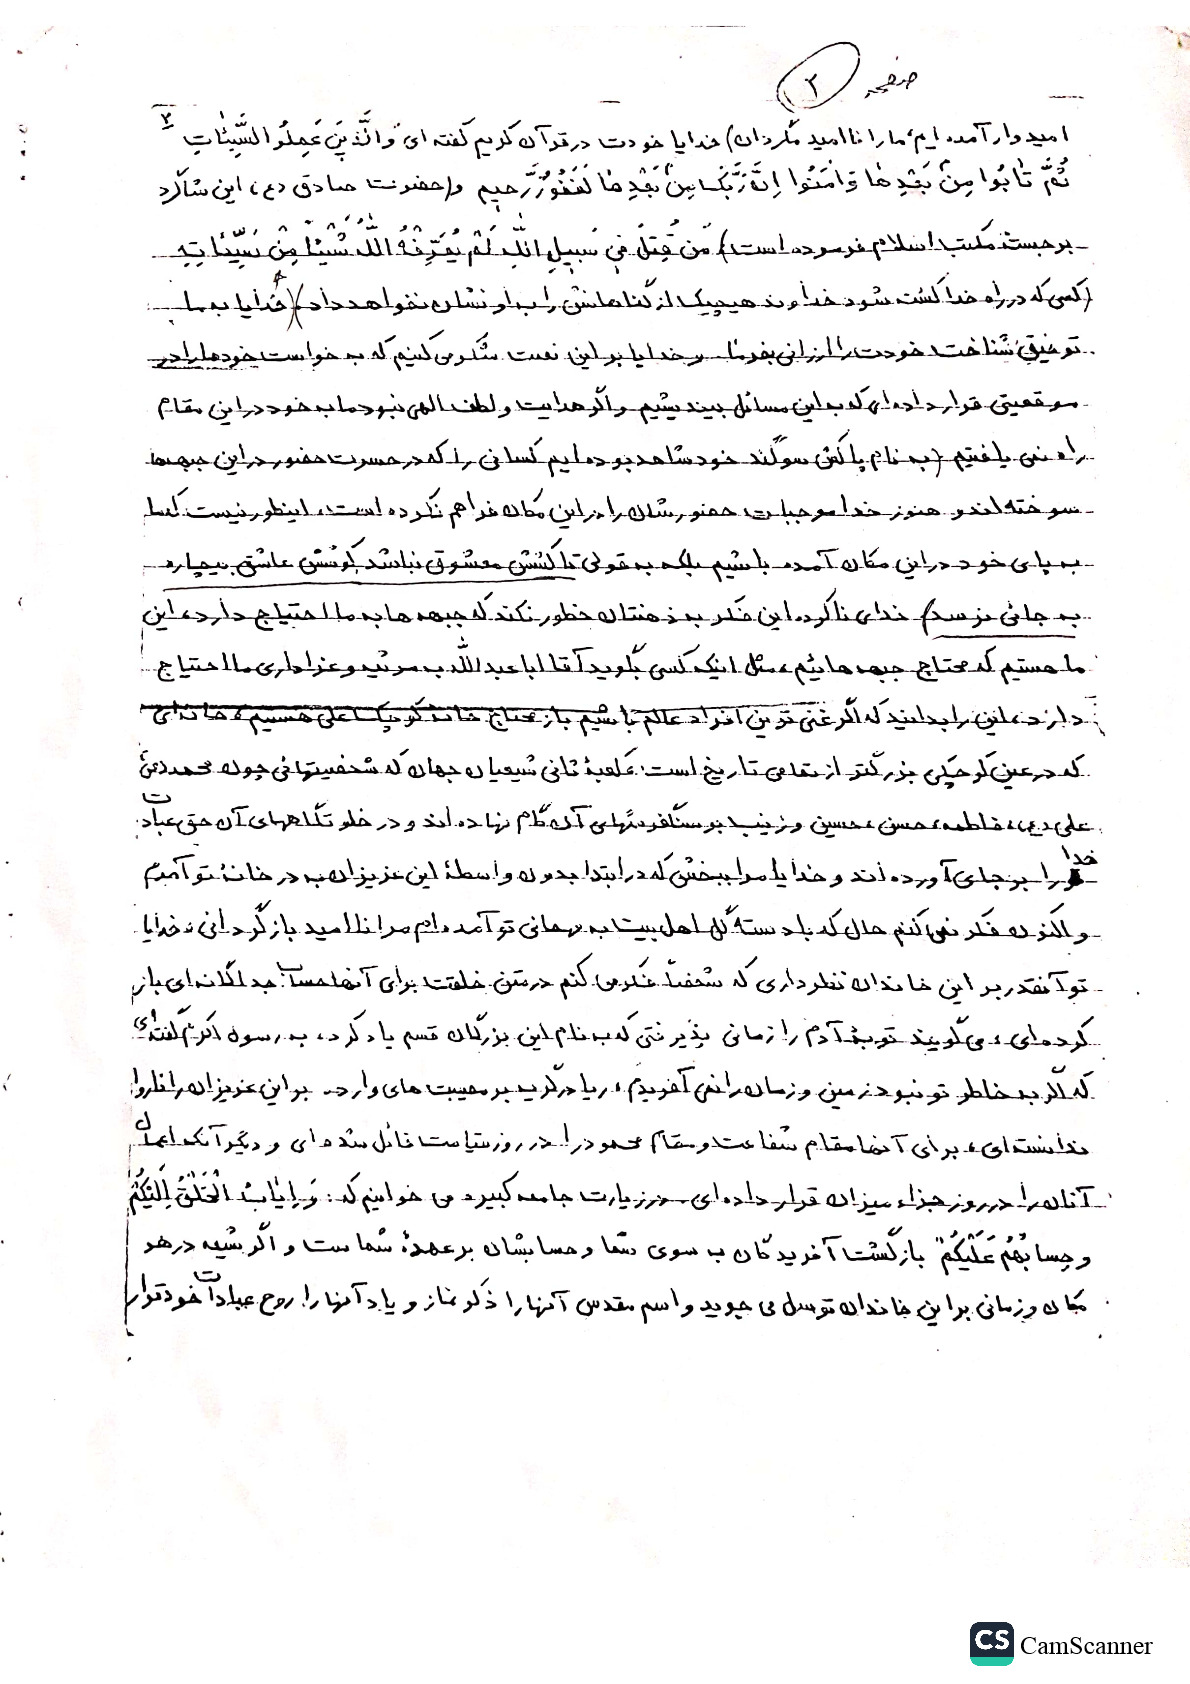 صفحه ۲
۲
امیدوار آمده ایم، ما را ناامید مگردان) خدایا خودت در قرآن کریم گفته ای وَالَّذِینَ عَمِلُوا السَّیِّئاتِ
ثُمَّ تابُوا مِنْ بَعْدِها وَامَنُوا اِنَّ رَبَّکَ مِنْ بَعْدِها لَغَفُورٌ رَّحیم و (حضرت صادق (ع) این شاگرد
برجسته مکتب اسلام فرموده است) مَن قُتِلَ فی سَبیلِ اللّهِ لَمْ یُعَرِّفْهُ اللّهُ شَیْئاً مِنْ سَیِّئاتِهِ
(کسی که در راه خدا کشته شود خداوند هیچیک از گناهانش را به او نشان نخواهد داد) (خدایا به ما
توفیق شناخت خودت را ارزانی بفرما و خدایا بر این نعمت شکر می کنیم که به خواست خود ما را در
موقعیتی قرار داده ای که به این مسائل بیندیشیم و اگر هدایت و لطف الهی نبود ما به خود در این مقام
راه نمی یافتیم (به نام پاکش سوگند خود شاهد بوده ایم کسانی را که در حسرت حضور در این جبهه ها
سوخته اند و هنوز خدا موجبات حضورشان را در این مکان فراهم نکرده است، اینطور نیست که ما
به پای خود در این مکان آمده باشیم بلکه به قولی تا کشش معشوق نباشد کوشش عاشق بیچاره
به جائی نرسد) خدای ناکرده این فکر به ذهنتان خطور نکند که جبهه ها به ما احتیاج دارد، این
ما هستیم که محتاج جبهه هائیم، مثل اینکه کسی بگوید آقا اباعبداللّه به مرثیه و عزاداری ما احتیاج
دارد، این را بدانید که اگر غنی ترین افراد عالم باشیم باز محتاج خانه کوچک علی هستیم، خانه ای
که در عین کوچکی بزرگتر از تمامی تاریخ است، کعبهٔ ثانی شیعیان جهان که شخصیتهائی چون محمد (ص)
علی (ع)، فاطمه، حسن، حسین و زینب بر سنگفرشهای آن گام نهاده اند و در خلوتگاههای آن حق عبادت
خدا را بر جای آورده اند و خدایا مرا ببخش که در ابتدا بدون واسطهٔ این عزیزان به در خانهٔ تو آمدم
و اکنون فکر نمی کنم حال که با دسته گل اهل بیت به مهمانی تو آمده ام مرا ناامید بازگردانی، خدایا
تو آنقدر بر این خاندان نظر داری که شخصاً فکر می کنم در متن خلقت برای آنها حساب جداگانه ای باز
کرده ای، می گویند توبهٔ آدم را زمانی پذیرفتی که به نام این بزرگان قسم یاد کرد، به رسول اکرم گفته ای
که اگر به خاطر تو نبود زمین و زمان را نمی آفریدم، ریا در گریه بر مصیبت های وارده بر این عزیزان را ناروا
ندانسته ای، برای آنها مقام شفاعت و مقام محمود را در روز قیامت قائل شده ای و دیگر آنکه اعمال
آنان را در روز جزاء میزان قرار داده ای در زیارت جامعه کبیره می خوانیم که: وَ اِیابُ الْخَلْقِ اِلَیْکُمْ
و حِسابُهُمْ عَلَیْکُمْ" بازگشت آفریدگان به سوی شما و حسابشان بر عهدهٔ شماست و اگر شیعه در هر
مکان و زمانی بر این خاندان توسل می جوید و اسم مقدس آنها را ذکر نماز و یاد آنها را روح عبادات خود قرار
CS CamScanner